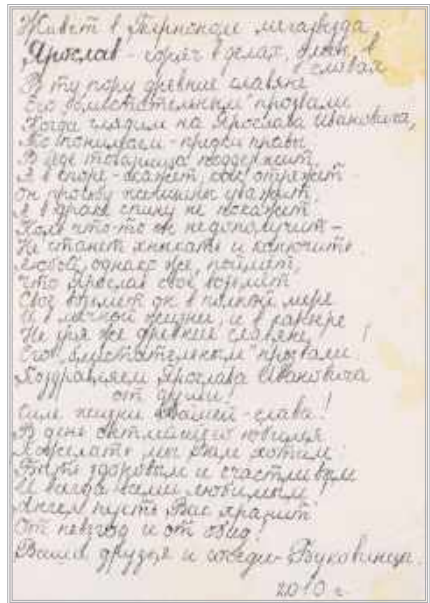 Живёт в Тернополе
Ярослав - горяч в делах, в
словах
В ту пору древние славяне
Его прозвали
Когда глядим на Ярослава Ивановича,
То понимаем - предки правы
В беде товарища поддержит
А в споре - скажет,
Он просьбу уважит,
А в драке спину не покажет
Коль что-то он недополучит -
Не станет хныкать и канючить.
Любой, однако же, поймёт,
Что Ярослав своё возьмёт
Своё возьмёт он в полной мере
И в личной жизни и в карьере
Не зря же древние славяне
Его прозвали!
Поздравляем Ярослава Ивановича
от души!
Силе жизни Вашей - слава!
В день юбилея
Пожелать мы Вам хотим:
Быть здоровым и счастливым
И всегда всеми любимым
Ангел пусть Вас хранит
От невзгод и от обид!
Ваши друзья и соседи - Буковинцы.
2010 г.